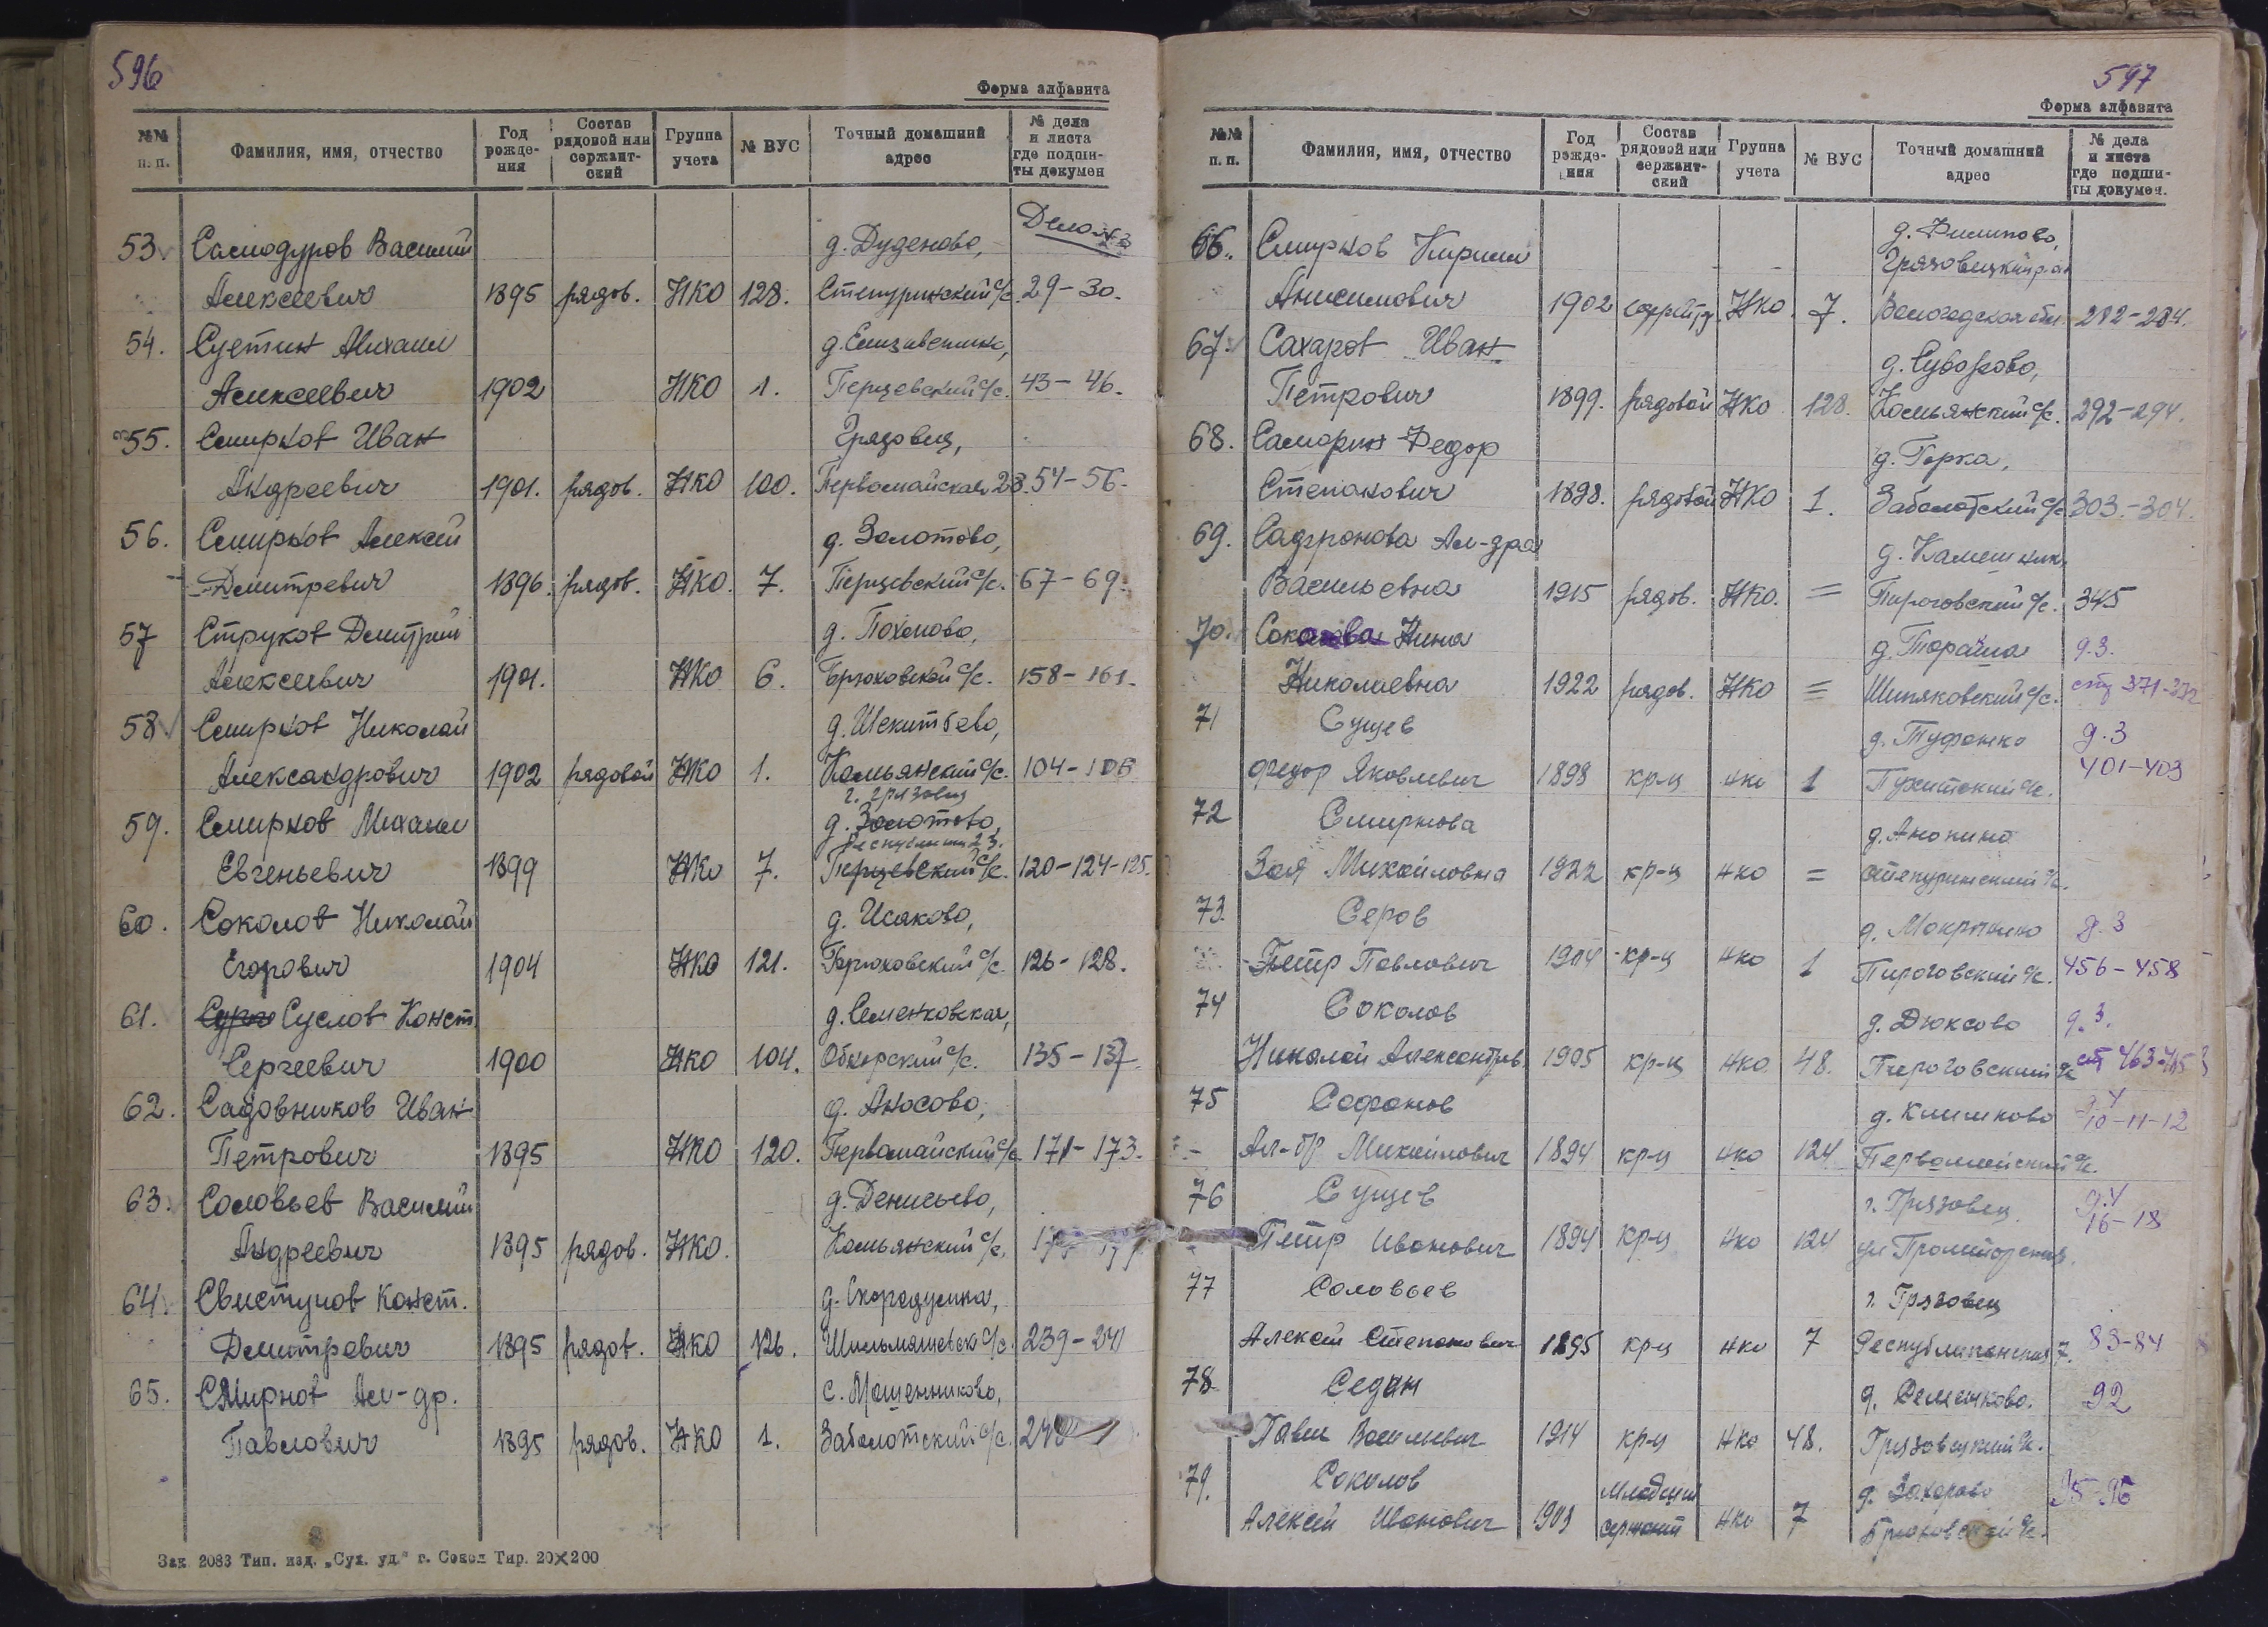 596
Форма алфавита
№№ п. п. Фамилия, имя, отчество Год рожде-ния Состав рядовой или сержант-ский Группа учета № ВУС Точный домашний адрес № дела и листа где подши-ты докумен
Дело № 3
53. Самодуров Василий д. Дуденово,
Алексеевич 1895 рядов. НКО 128. Степуринский с/с. 29-30.
54. Суетин Михаил
Алексеевич 1902 НКО 1. Перцевский с/с. 43-46.
55. Смирнов Иван Грязовец,
Андреевич 1901. рядов. НКО 100. Первомайская 23. 54-56.
56. Смирнов Алексей д. Золотово,
Дмитревич 1896. рядов. НКО. 7. Перцевский с/с. 67-69.
57 Струков Дмитрий
Алексеевич 1901. НКО 6. 158-161.
58 Смирнов Николай
Александрович 1902 рядовой НКО 1. Комьянский с/с. 104-106
г. Грязовец
59. Смирнов Михаил д. Золотово,
Евгеньевич 1899 НКО 7. Перцевский с/с. 120-124-125.
60. Соколов Николай д. Исаково,
Егорович 1904 НКО 121. 126-128.
61. Суслов Конст. д. Семенковская,
Сергеевич 1900 НКО 104. Обнорский с/с. 135-137.
62. Садовников Иван д. Аносово,
Петрович 1895 НКО 120. Первомайский с/с 171-173.
63. Соловьев Василий д. Денисьево,
Андреевич 1895 рядов. НКО. Комьянский с/с.
64. Свистунов Конст. д. Скородумка,
Дмитревич 1895 рядов. НКО 126. 239-241
65. Смирнов Ал-др. с. Мошенниково,
Павлович 1895 рядов. НКО 1. Заболотский с/с.
Зак. 2083 Тип. изд. „Сух. уд.“ г. Сокол Тир. 20×200
597
Форма алфавита
№№ п. п. Фамилия, имя, отчество Год рожде-ния Состав рядовой или сержант-ский Группа учета № ВУС Точный домашний адрес № дела и листа где подши-ты докумен.
66. Смирнов Кирилл д. Филипово,
Грязовецкий р-он
Анисимович 1902 НКО 7. Вологодская обл. 282-284.
67. Сахаров Иван д. Суворово,
Петрович 1899. рядовой НКО 128. Комьянский с/с. 292-294.
68. Саморин Федор д. Горка,
Степанович 1898. рядовой НКО 1. Заболотский с/с 303-304.
69. Ал-дра д. Камешник
Васильевна 1915 рядов. НКО. = Пироговский с/с. 345
70. Нина д.3.
Николаевна 1922 рядов. НКО = Шиляковский с/с.
71 Сущев д.3
Федор Яковлевич 1898 кр-ц НКО 1 401-403
72 Смирнова д. Анохино
Зоя Михайловна 1922 кр-ц НКО = Степуринский с/с.
73. Серов д. Мокрынино д.3
Петр Павлович 1904 кр-ц НКО 1 Пироговский с/с. 456-458
74 Соколов д. Дюксово д.3.
Николай Александров. 1905 кр-ц НКО 48. Пироговский с/с
75 Софонов д. Климково д.4
10-11-12
Ал-др Михайлович 1894 кр-ц НКО 124 Первомайский с/с.
76 Сущев г. Грязовец д.4
16-18
Петр Иванович 1894 кр-ц НКО 124
77 Соловьев г. Грязовец
Алексей Степанович 1895 кр-ц НКО 7 Республиканская 7. 83-84
78 Седин 92
Павел Васильевич 1914 кр-ц НКО 48. Грязовецкий с/с.
79. Соколов младший д. Захарово 95-96
Алексей Иванович 1903 сержант НКО 7